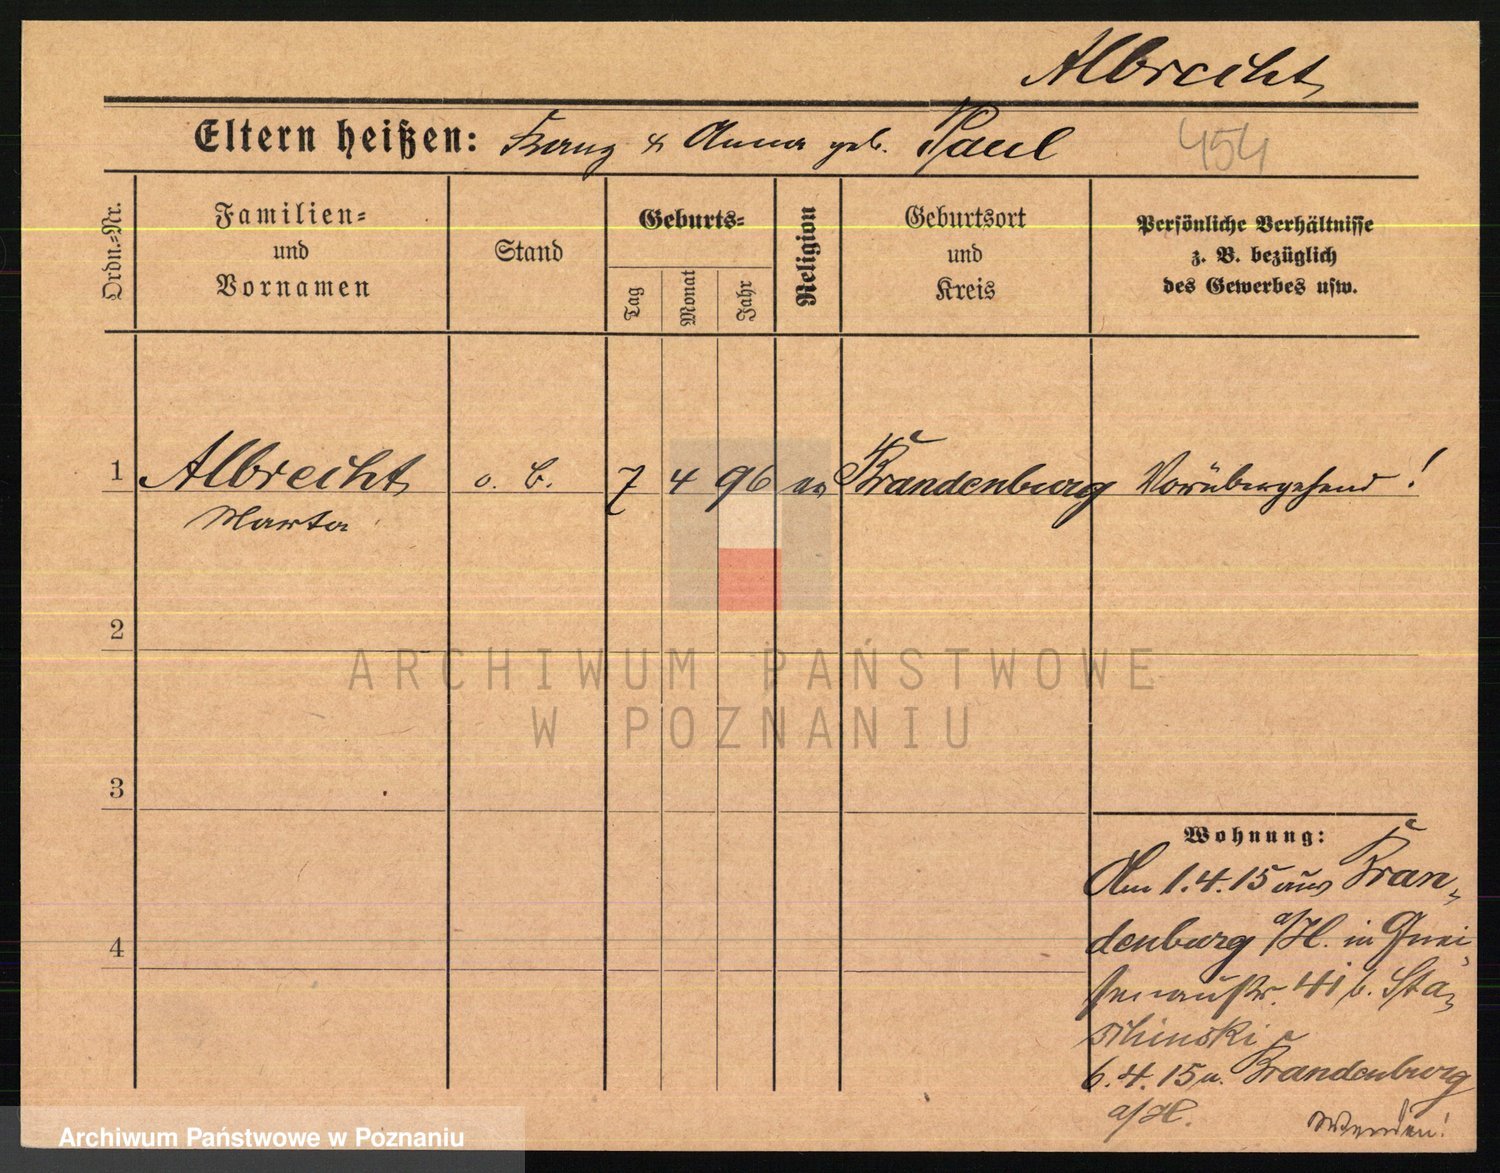 Albrecht
Eltern heißen: Franz & Anna geb. Paul 454
Ordn.-Nr.
Familien-
und
Vornamen
Stand
Geburts-
Tag
Monat
Jahr
Religion
Geburtsort
und
Kreis
Persönliche Verhältnisse
z. B. bezüglich
des Gewerbes usw.
1 Albrecht o. B. 7 4 96 ev Brandenburg Vorübergehend!
Marta
2
3
4
Wohnung:
Am 1.4.15 aus Bran-
denburg a/H. in Gnei-
senaustr. 41 b. Sta-
schinski
6.4.15 n. Brandenburg
a/H.
Wenden!
ARCHIWUM PAŃSTWOWE
W POZNANIU
Archiwum Państwowe w Poznaniu